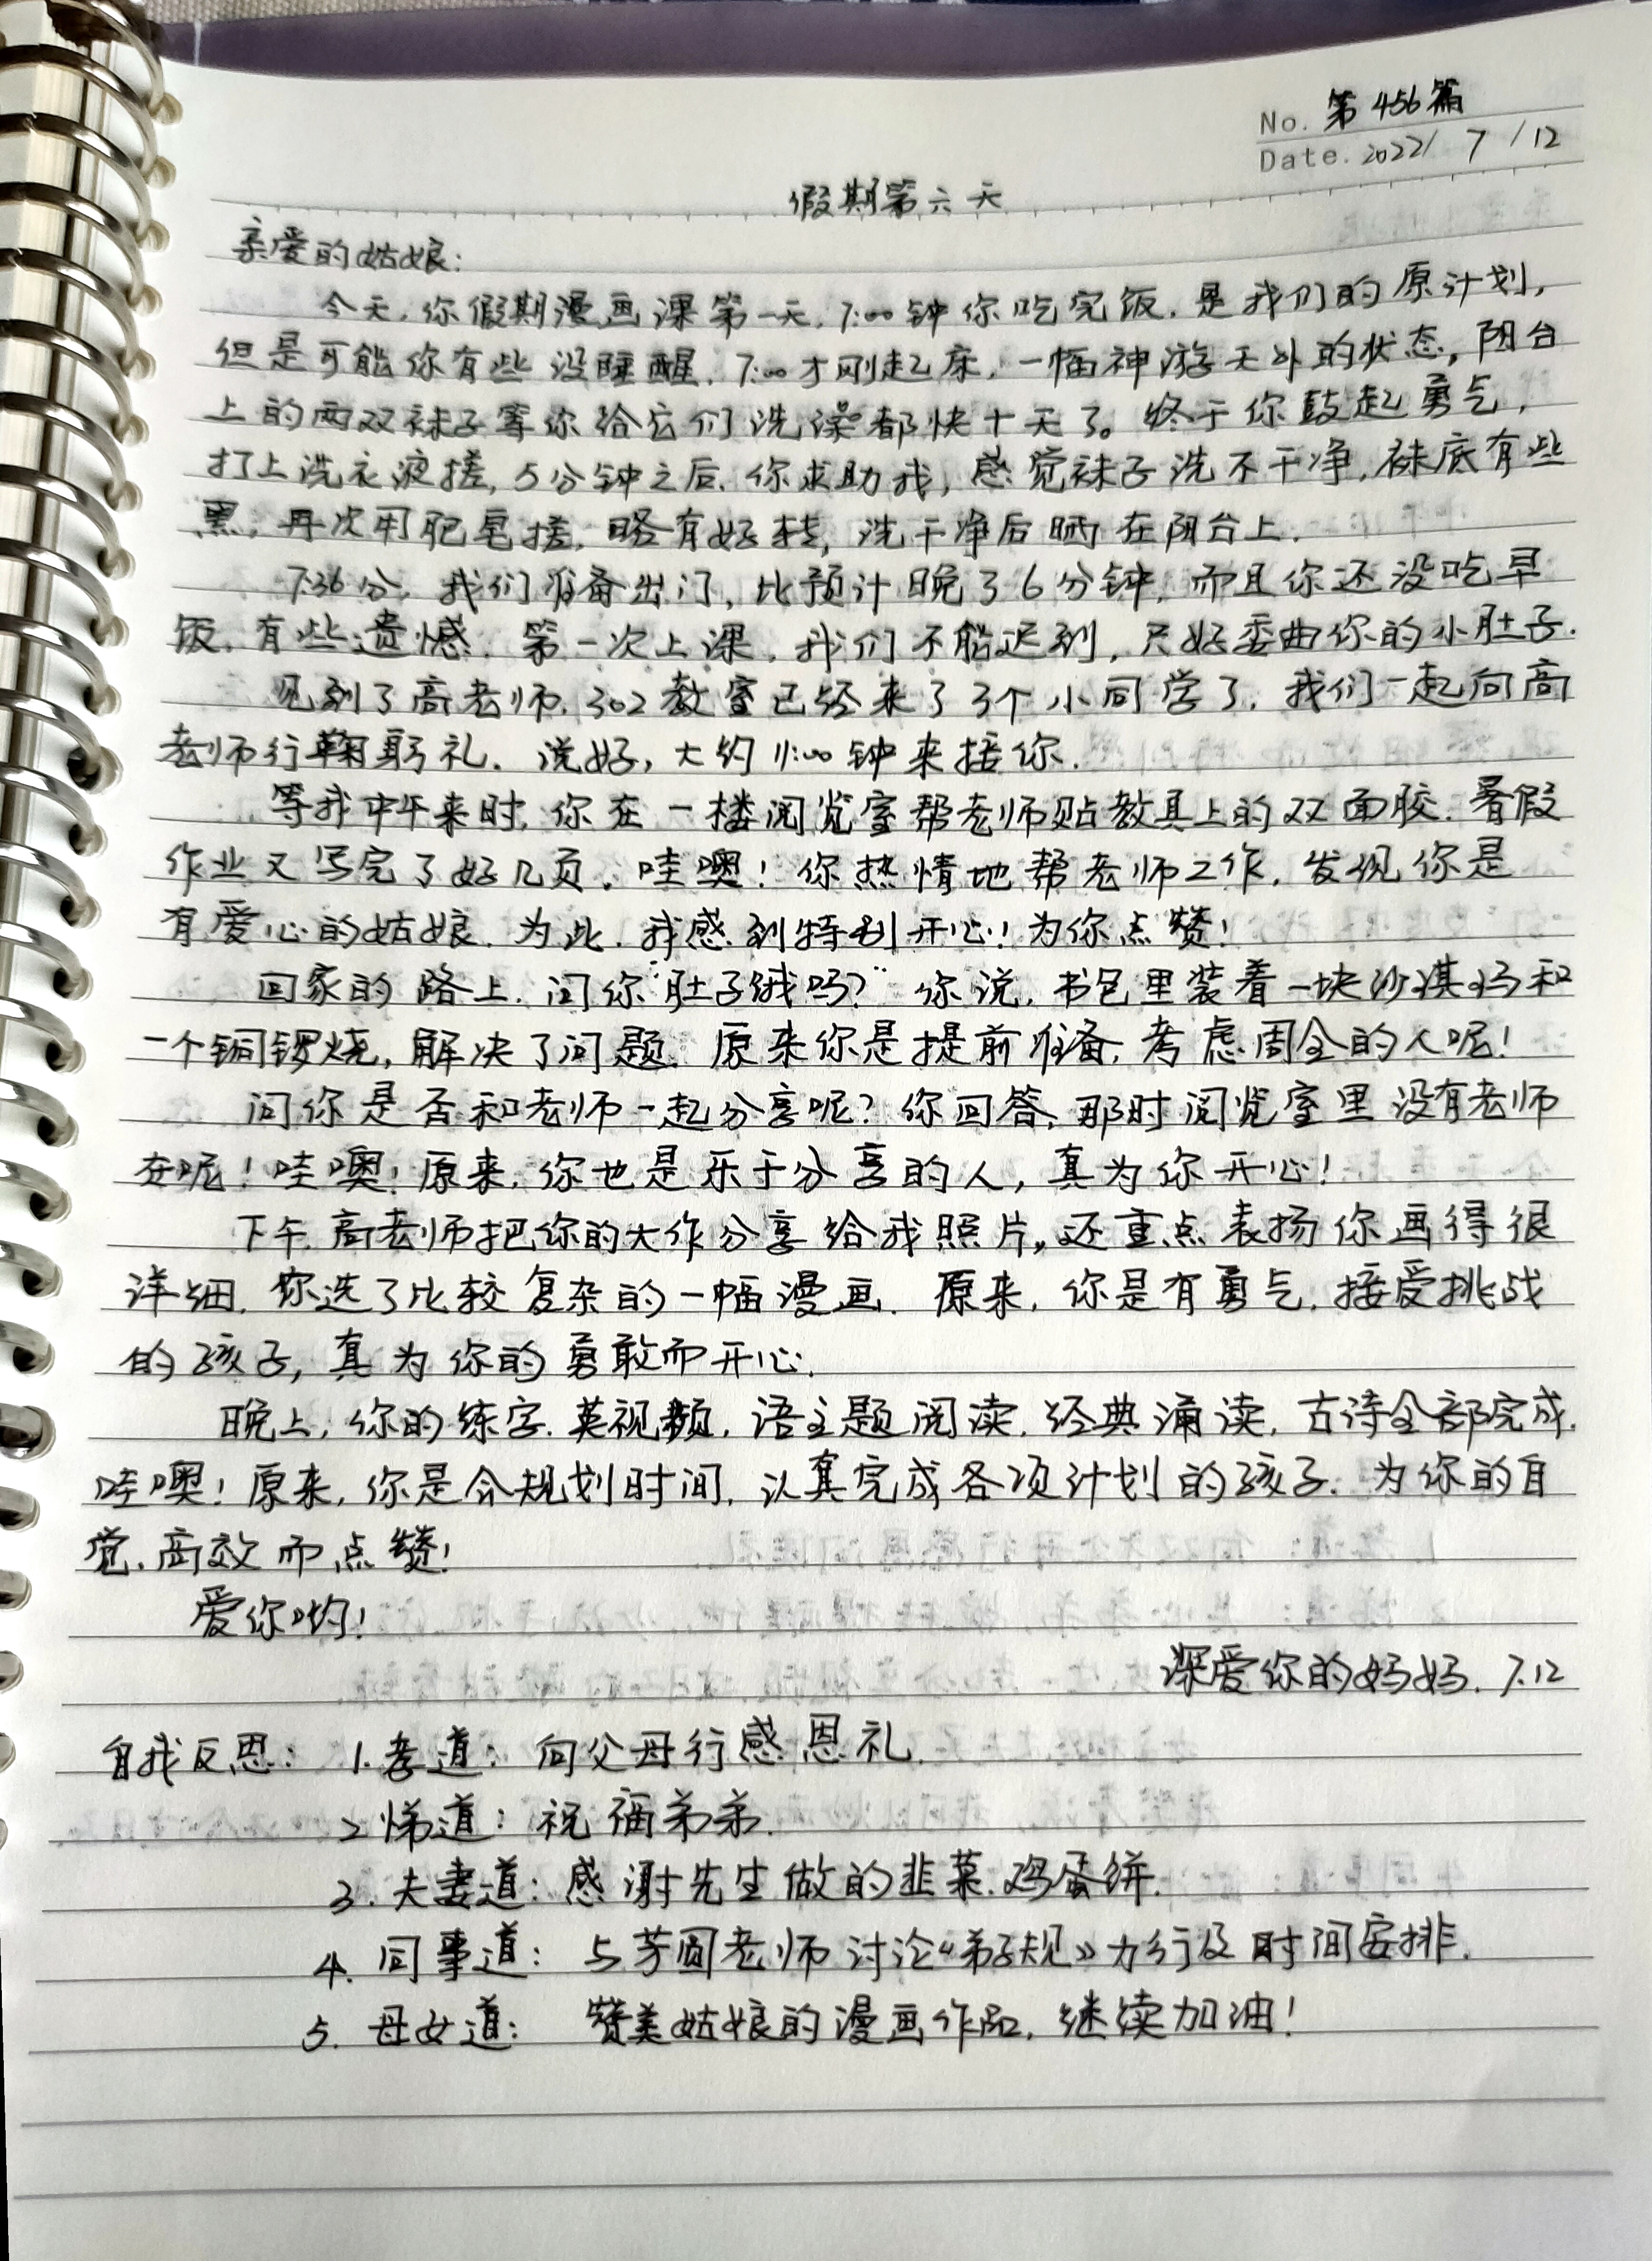 No. 第456篇
Date. 2022/ 7 /12
假期第六天
亲爱的姑娘:
今天,你假期漫画课第一天,7:00钟你吃完饭,是我们的原计划,
但是可能你有些没睡醒,7:00才刚起床,一幅神游天外的状态,阳台
上的两双袜子等你给它们洗澡都快十天了。终于你鼓起勇气,
打上洗衣液搓,5分钟之后,你求助我,感觉袜子洗不干净,袜底有些
黑,再次用肥皂搓,略有好转,洗干净后晒在阳台上.
7:36分,我们准备出门,比预计晚了6分钟,而且你还没吃早
饭,有些遗憾.第一次上课,我们不能迟到,只好委曲你的小肚子.
见到了高老师,302教室已经来了3个小同学了,我们一起向高
老师行鞠躬礼.说好,大约11:00钟来接你.
等我中午来时,你在一楼阅览室帮老师贴教具上的双面胶.暑假
作业又写完了好几页.哇噢!你热情地帮老师工作,发现你是
有爱心的姑娘.为此,我感到特别开心!为你点赞!
回家的路上,问你“肚子饿吗?”你说,书包里装着一块沙淇玛和
一个铜锣烧,解决了问题.原来你是提前准备,考虑周全的人呢!
问你是否和老师一起分享呢?你回答,那时阅览室里没有老师
在呢!哇噢!原来,你也是乐于分享的人,真为你开心!
下午,高老师把你的大作分享给我照片,还重点表扬你画得很
详细.你选了比较复杂的一幅漫画.原来,你是有勇气,接受挑战
的孩子,真为你的勇敢而开心.
晚上,你的练字.英视频,语主题阅读,经典诵读,古诗全部完成.
哇噢!原来,你是会规划时间,认真完成各项计划的孩子.为你的自
觉.高效而点赞!
爱你哟!
深爱你的妈妈.7.12
自我反思: 1.孝道:向父母行感恩礼.
2悌道:祝福弟弟.
3.夫妻道:感谢先生做的韭菜.鸡蛋饼.
4.同事道:与芳圆老师讨论《弟子规》力行及时间安排.
5.母女道: 赞美姑娘的漫画作品,继续加油!